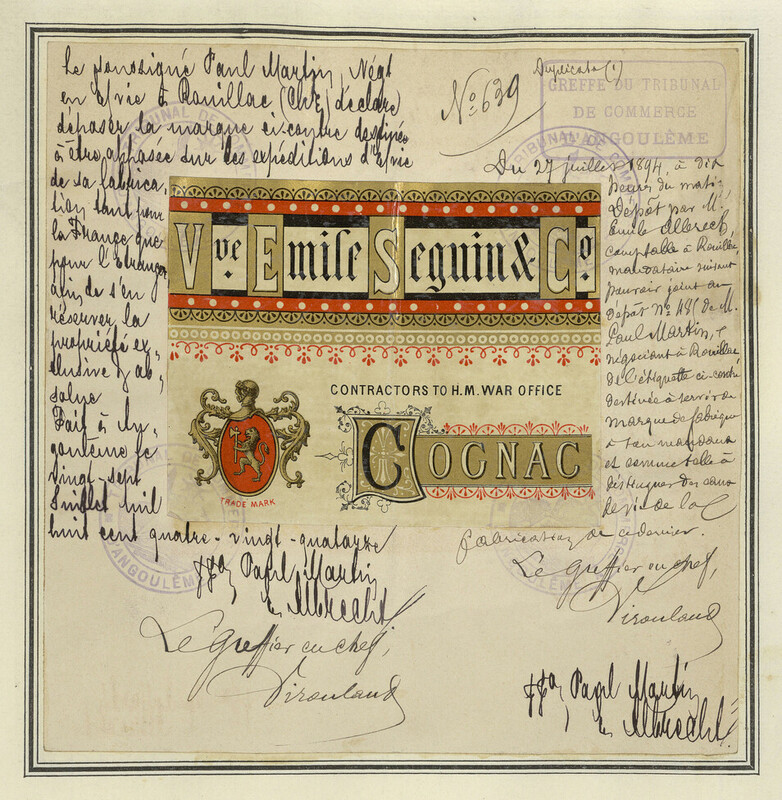 Le soussigné Paul Martin, Négt
en E/vie à Rouillac (Chte) déclare
déposer la marque ci-contre destinée
à être apposée sur les expéditions d'E/vie
de sa fabrica,
tion tant pour
la France que
pour l'Etranger
afin de s'en
réserver la
propriété ex,
clusive & ab,
solue
Fait à An,
goulême le
vingt-sept
Juillet mil
huit cent quatre-vingt-quatorze
Paul Martin
Albrecht
Le greffier en chef,
Virouland
No 639
Duplicata (1)
GREFFE DU TRIBUNAL
DE COMMERCE
ANGOULÊME
Du 27 juillet 1894, à dix
heures du mati-
Dépôt par M.
Emile Albrecht,
comptable à Rouillac
mandataire suivant
pouvoir joint au
dépôt No 431 de M.
Paul Martin,
négociant à Rouillac,
de l'étiquette ci-contre
destinée à servir de
marque de fabrique
à son mandant
et comme telle à
distinguer des eaux
de vie de la
fabrication de ce dernier.
Le Greffier en chef,
Virouland
Paul Martin
Albrecht
Vve Emile Seguin & Co
CONTRACTORS TO H.M. WAR OFFICE
COGNAC
TRADE MARK
TRIBUNAL DE COM
ANGOULÊME
TRIBUNAL DE COM
ANGOULÊME